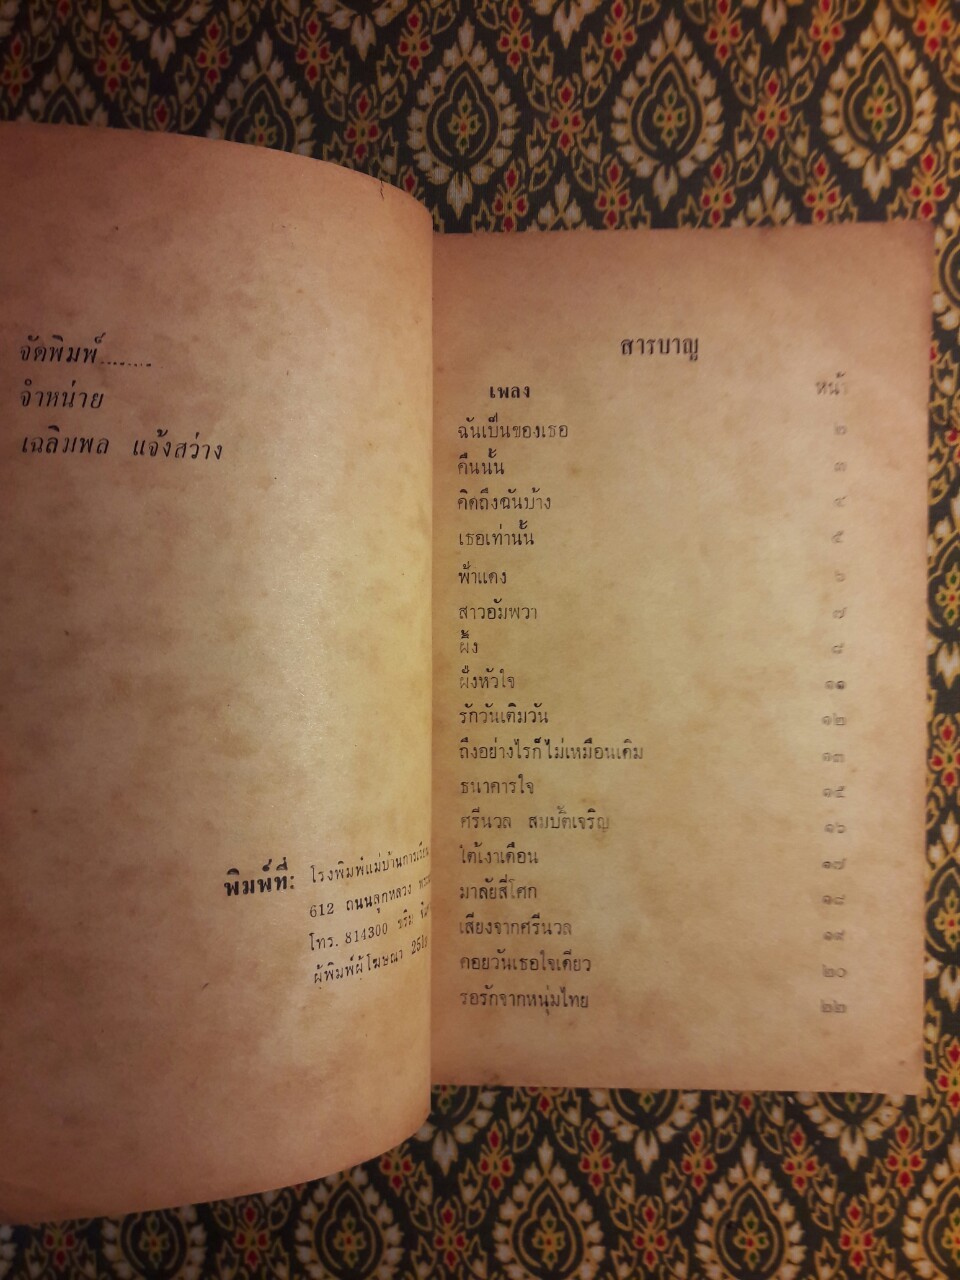 จัดพิมพ์.......
จำหน่าย
เฉลิมพล แจ้งสว่าง
พิมพ์ที่: โรงพิมพ์แม่บ้านการเรือน
612 ถนนลูกหลวง
โทร. 814300
ผู้พิมพ์ผู้โฆษณา
สารบาญ
เพลง หน้า
ฉันเป็นของเธอ ๒
คืนนั้น ๓
คิดถึงฉันบ้าง ๔
เธอเท่านั้น ๕
ฟ้าแดง ๖
สาวอัมพวา ๗
ผึ้ง ๘
ฝั่งหัวใจ ๑๑
รักวันเติมวัน ๑๒
ถึงอย่างไรก็ไม่เหมือนเดิม ๑๓
ธนาคารใจ ๑๕
ศรีนวล สมบัติเจริญ ๑๖
ใต้เงาเดือน ๑๗
มาลัยสี่โศก ๑๘
เสียงจากศรีนวล ๑๙
คอยวันเธอใจเดียว ๒๐
รอรักจากหนุ่มไทย ๒๒